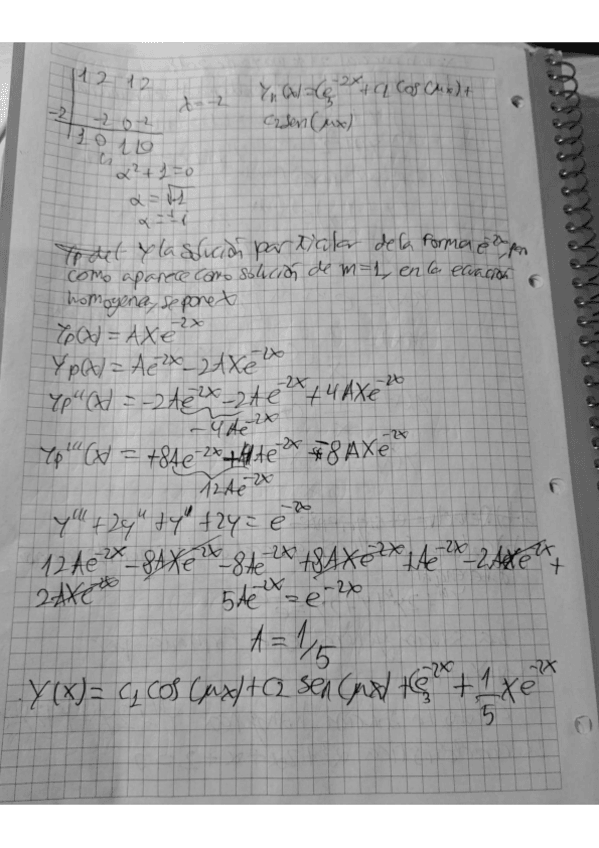 1 2 1 2
-2 -2 0 -2
1 0 1 0
λ = -2
Yh(x) = C3e^-2x + C1 cos(μx) +
C2 sen(μx)
α² + 1 = 0
α = √-1
α = ± i
Y la solución particular de la forma e^-2x,
como aparece como solución de m=1, en la ecuación
homogenea, se pone x
Yp(x) = AXe^-2x
Yp(x) = Ae^-2x - 2AXe^-2x
Yp''(x) = -2Ae^-2x - 2Ae^-2x + 4AXe^-2x
-4Ae^-2x
Yp'''(x) = +8Ae^-2x + 4Ae^-2x - 8AXe^-2x
12Ae^-2x
y''' + 2y'' + y' + 2y = e^-2x
12Ae^-2x - 8AXe^-2x - 8Ae^-2x + 8AXe^-2x + Ae^-2x - 2AXe^-2x +
2AXe^-2x 5Ae^-2x = e^-2x
A = 1/5
Y(x) = C1 cos(μx) + C2 sen(μx) + C3e^-2x + 1/5 Xe^-2x